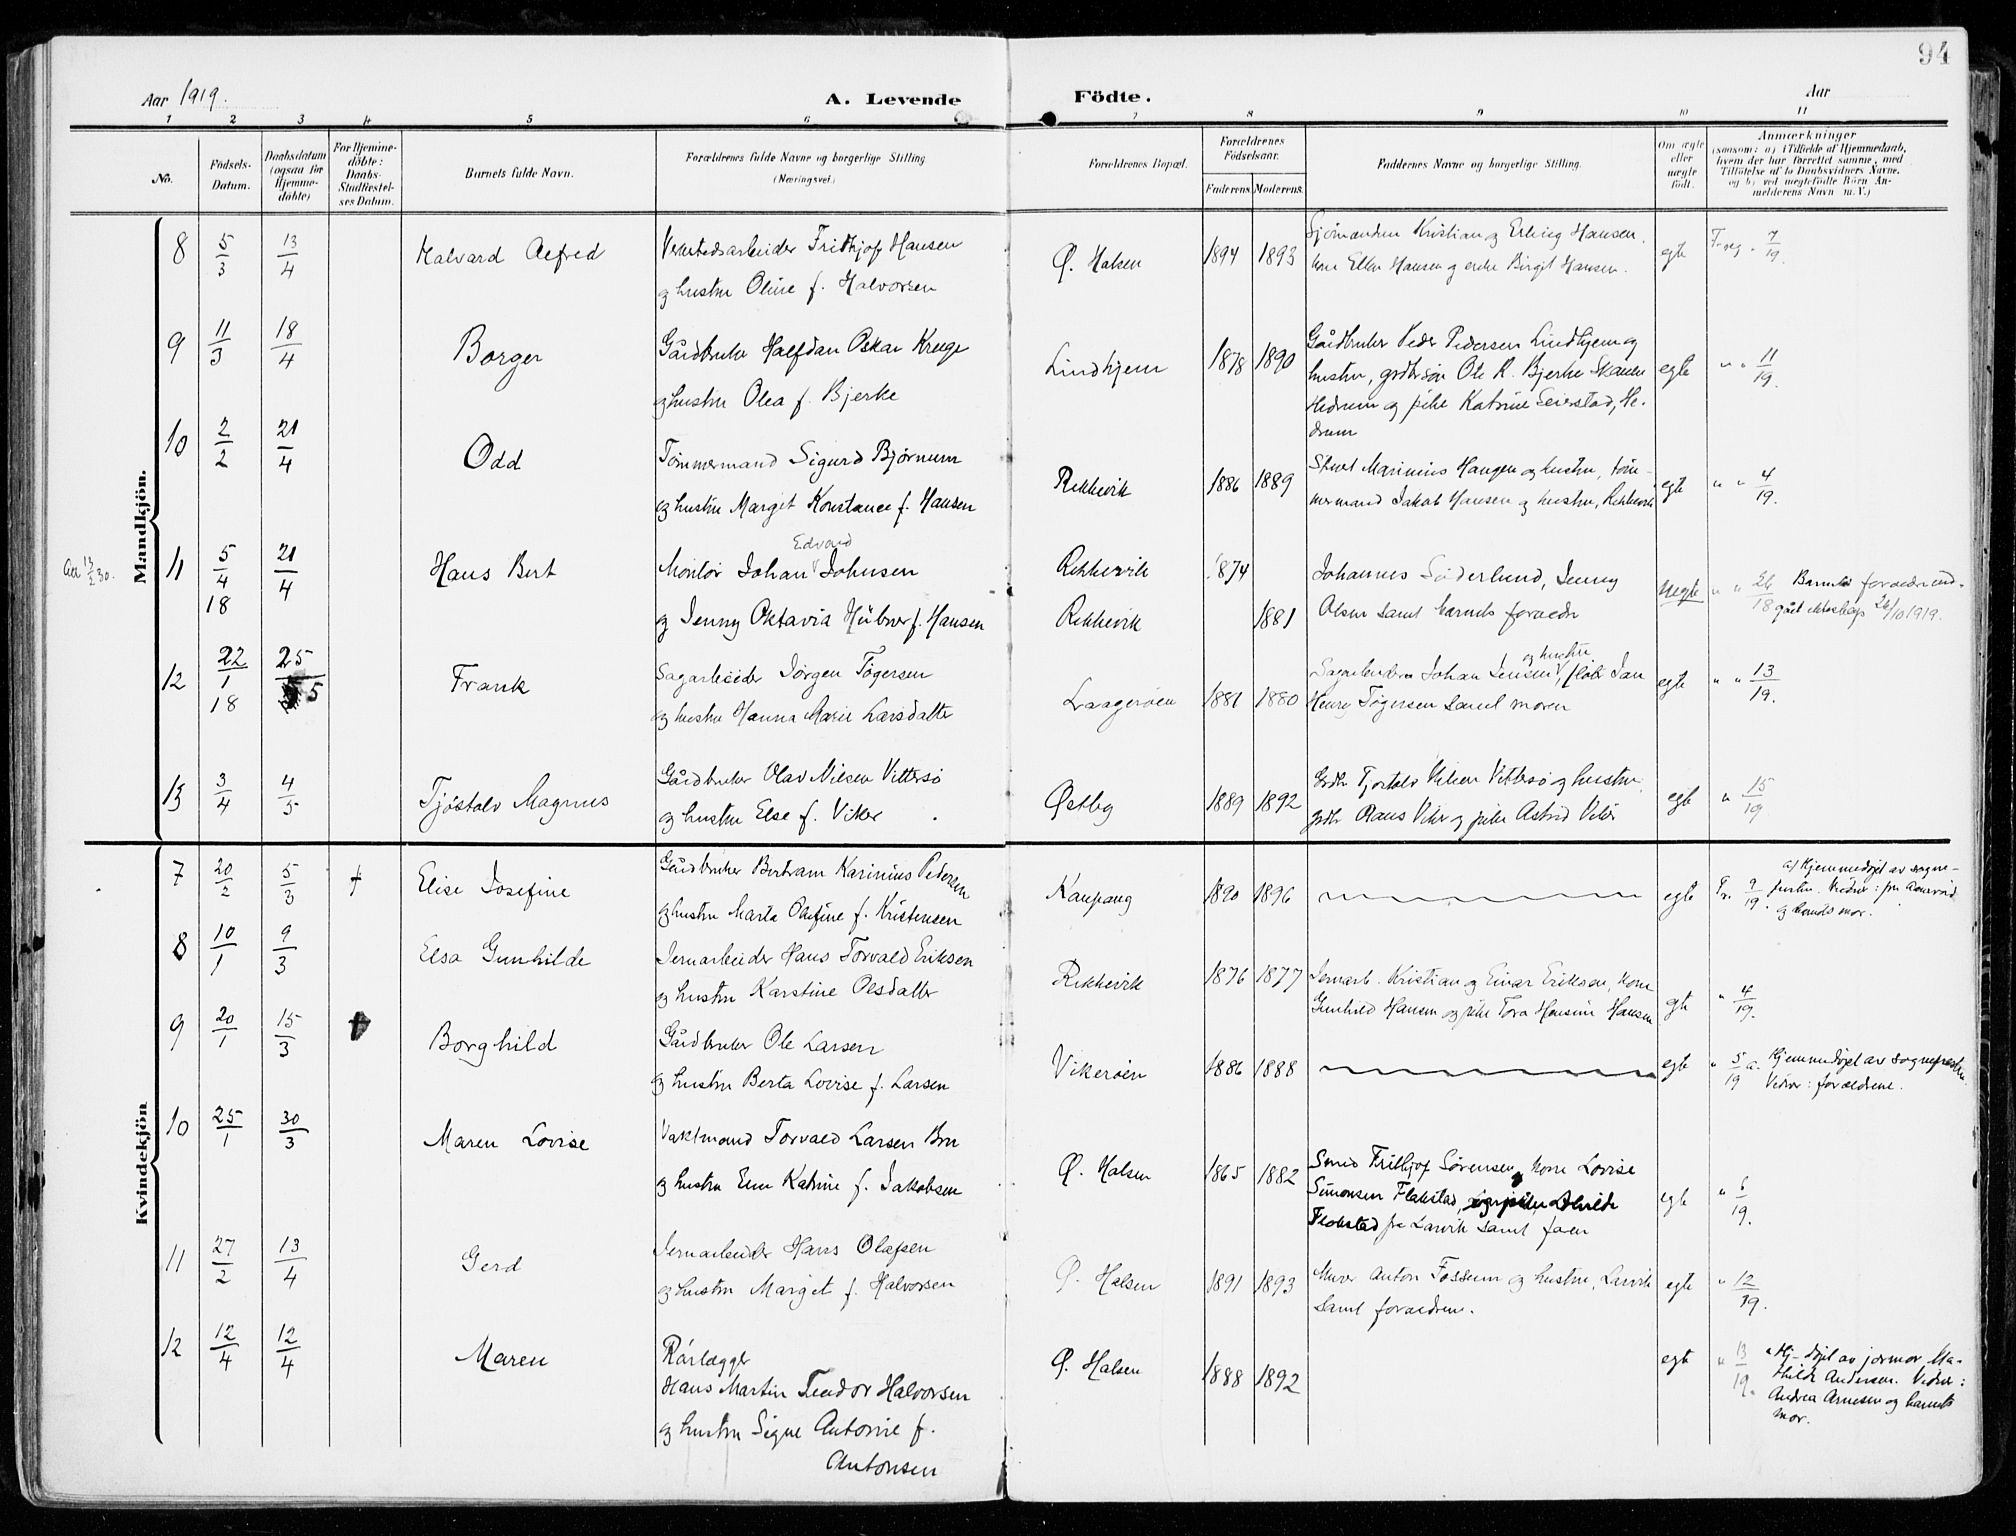 94
Aar 1919.
A. Levende
Födte.
Aar
1 2 3 4 5 6 7 8 9 10 11
No.
Födsels-
Datum.
Daabsdatum
(ogsaa for
Hjemme-
döbte)
For Hjemme-
döbte:
Daabs-
Stadfæstel-
ses Datum.
Barnets fulde Navn.
Forældrenes fulde Navne og borgerlige Stilling
(Næringsvei.)
Forældrenes Bopæl.
Forældrenes
Födselsaar.
Faderens. Moderens.
Faddernes Navne og borgerlige Stilling.
Om ægte
eller
uægte
födt.
Anmærkninger
(saasom: a) i Tilfælde af Hjemmedaab,
hvem der har forrettet samme, med
Tilföielse af to Daabsvidners Navne,
og b) ved uægtefödte Börn An-
melderens Navn m. V.)
Mandkjön.
8 5/3 13/4 Halvard Alfred
Verkstedsarbeider Fridthjof Hansen
og hustru Oline f. Halvorsen
Ø. Halsen 1894 1893
Sjømændene Kristian og Erling Hansen,
kone Ellen Hansen og enke Birgit Hansen.
egte 7/19.
9 11/3 18/4 Borger
Gårdbruker Halfdan Oskar Kruge
og hustru Olea f. Bjerke
Lindhjem 1878 1890
Gårdbruker Peder Pedersen Lindhjem og
hustru, grdbrsøn Ole R. Bjerke Skauen
Hedrum og pike Katrine Seierstad, He-
drum
egte " " 11/19.
10 2/2 21/4 Odd
Tømmermand Sigurd Bjørnum
og hustru Margit Konstance f. Hansen
Rekkevik 1886 1889
Marinius Haugen og hustru, tøm-
mermand Jakob Hansen og hustru, Rekkevik
egte " " 4/19.
13/2 30.
11 5/4 18 21/4 Hans Bert
Edvard
Montør Johan Johnsen
og Jenny Oktavia Hübner f. Hansen
Rekkevik 1874
Rekkevik 1881
Johannes Søderlund, Jenny
Olsen samt barnets forældre
uegte " " 26/18
Barnets forældre ind-
gått ekteskap 26/10 1919.
12 22/1 18 25/5 Frank
Sagarbeider Jørgen Tøgersen
og hustru Hanna Marie Larsdatter
Laagerøen 1881 1880
og hustru
Sagarbeider Johan Jensen, Jan
Henry Tøgersen samt moren
egte " " 13/19.
13 3/4 4/5 Tjøstolv Magnus
Gårdbruker Olav Nilsen Vittersø
og hustru Else f. Viker
Østby 1889 1892
Grdbr Tjøstolv Nilsen Vittersø og hustru,
grdbr Klaus Viker og pike Astrid Viker
egte " 15/19
Kvindekjön
7 20/2 5/3 † Elise Josefine
Gårdbruker Bertram Karinius Pedersen
og hustru Marta Olefine f. Kristensen
Kaupang 1890 1896
egte Fr. 9/19.
a) Hjemmedøpt av sogne-
presten. Vidner:
og barnets mor.
8 10/1 9/3 Elsa Gunhilde
Jernarbeider Hans Torvald Eriksen
og hustru Karstine Olsdatter
Rekkevik 1876 1877
Jernarb. Kristian og Einar Eriksen, kone
Gunhild Hansen og pike Tora Hansine Hansen
egte " 4/19.
9 20/1 15/3 † Borghild
Gårdbruker Ole Larsen
og hustru Berta Lovise f. Larsen
Vikerøen 1886 1888
egte " 5/19 a.
Hjemmedøpt av sognepresten.
Vidner: forældrene.
10 25/1 30/3 Maren Lovise
Vaktmand Torvald Larsen Bru
og hustru Emma Katrine f. Jakobsen
Ø. Halsen 1865 1882
Smed Fritjof Sørensen, kone Lovise
Simonsen Flakstad, og pike Alvilde
Flakstad fra Larvik samt faren
egte " 6/19.
11 27/2 13/4 Gerd
Jernarbeider Hans Olafsen
og hustru Margit f. Halvorsen
Ø. Halsen 1891 1893
Murer Anton Fossum og hustru, Larvik
samt forældrene.
egte " 12/19.
12 12/4 12/4 Maren
Rørlægger
Hans Martin Teodor Halvorsen
og hustru Signe Antonie f.
Antonsen
Ø. Halsen 1888 1892
egte " 13/19.
Hj.døpt av jormor Ma-
thilde Andersen. Vidner:
Andrea Arnesen og barnets
mor.